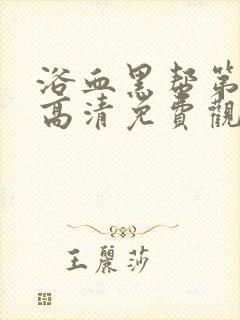 浴血黑帮第
高清免費觀
王麗莎